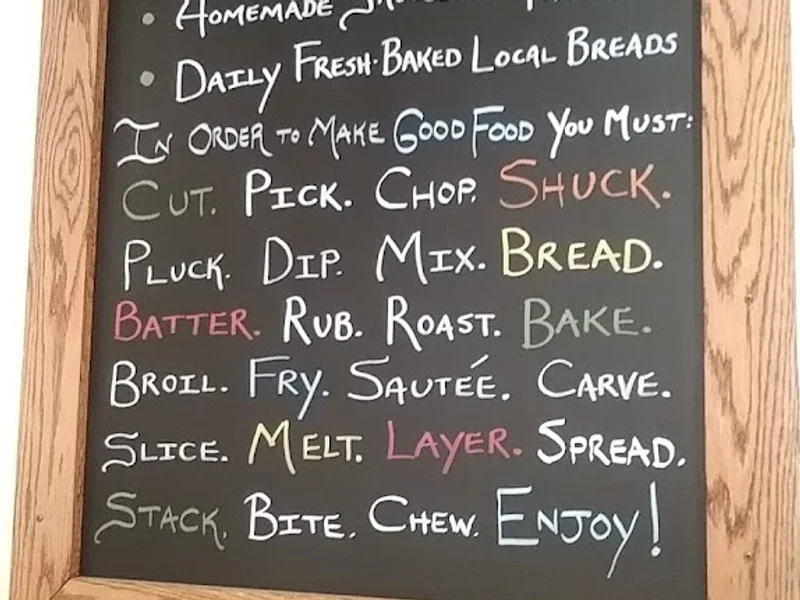 • HOMEMADE
• DAILY FRESH-BAKED LOCAL BREADS
IN ORDER TO MAKE GOOD FOOD YOU MUST:
CUT. PICK. CHOP. SHUCK.
PLUCK. DIP. MIX. BREAD.
BATTER. RUB. ROAST. BAKE.
BROIL. FRY. SAUTEÉ. CARVE.
SLICE. MELT. LAYER. SPREAD.
STACK. BITE. CHEW. ENJOY!